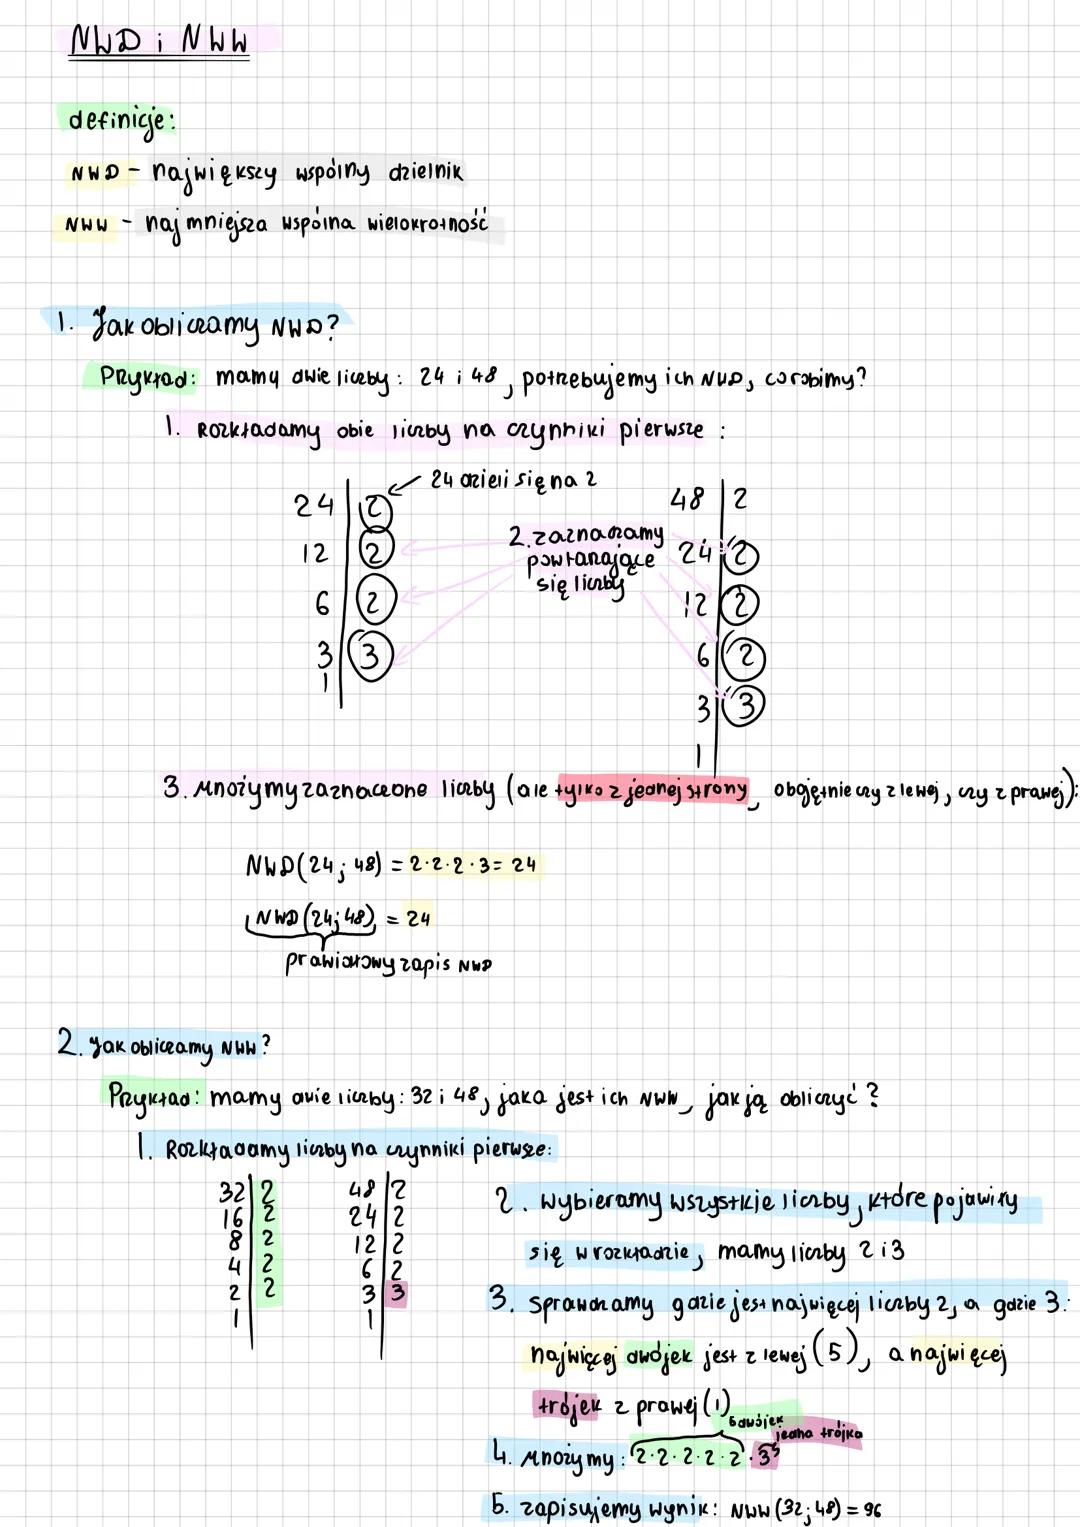 NWD i NWW
definicje:
NWD - największy wspólny dzielnik
NWW - najmniejsza wspólna wielokrotność
1. Jak obliczamy NWD?
Przykład: mamy dwie liczby: 24 i 48, potrzebujemy ich NWD, co robimy?
1. Rozkładamy obie liczby na czynniki pierwsze:
24 dzieli się na 2
24 | 2
12 | 2
6 | 2
3 | 3
1
2. zaznaczamy
powtarzające
się liczby
48 | 2
24 | 2
12 | 2
6 | 2
3 | 3
1
3. Mnożymy zaznaczone liczby (ale tylko z jednej strony, obojętnie czy z lewej, czy z prawej):
NWD(24; 48) = 2·2·2·3 = 24
NWD(24; 48) = 24
prawidłowy zapis NWD
2. Jak obliczamy NWW?
Przykład: mamy dwie liczby: 32 i 48, jaka jest ich NWW, jak ją obliczyć?
1. Rozkładamy liczby na czynniki pierwsze:
32 | 2
16 | 2
8 | 2
4 | 2
2 | 2
1
48 | 2
24 | 2
12 | 2
6 | 2
3 | 3
1
2. Wybieramy wszystkie liczby, które pojawiły
się w rozkładzie, mamy liczby 2 i 3
3. Sprawdzamy gdzie jest najwięcej liczby 2, a gdzie 3:
najwięcej dwójek jest z lewej (5), a najwięcej
trójek z prawej (1)
5 dwójek
jedna trójka
4. Mnożymy: 2·2·2·2·2·3
5. zapisujemy wynik: NWW (32; 48) = 96